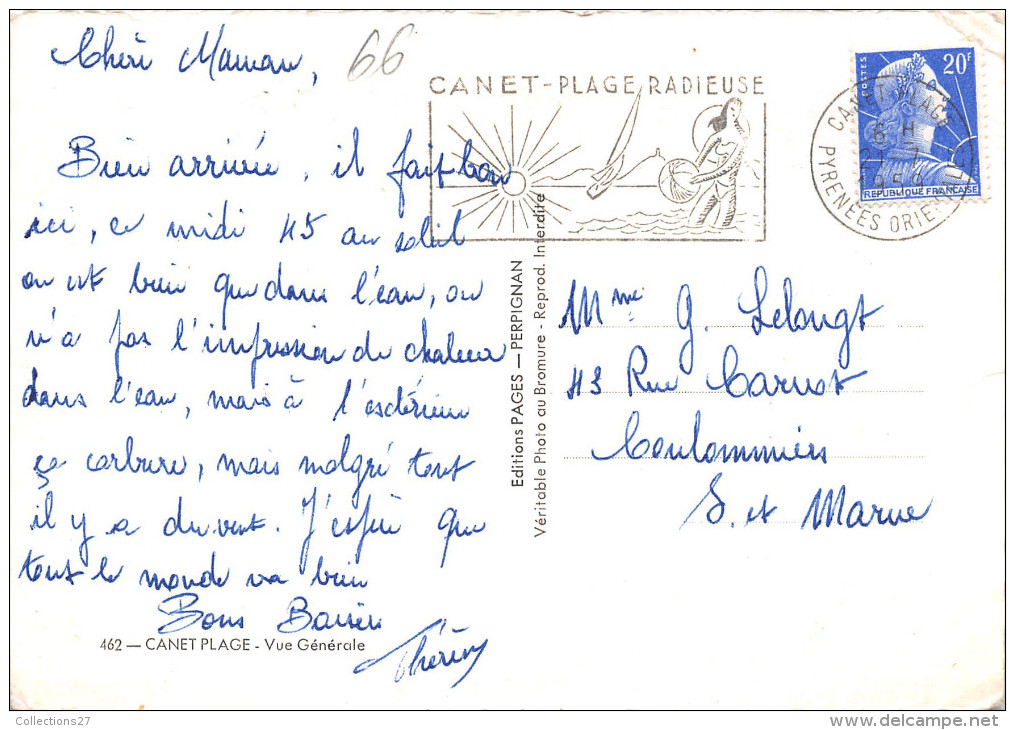 Chéri Maman,
66
Bien arrivée, il fait bon
ici, ce midi 45 au soleil
on est bien que dans l'eau, on
n'a pas l'impression de chaleur
dans l'eau, mais à l'extérieur
ça carbure, mais malgré tout
il y a du vent. J'espère que
tout le monde va bien
Bons Baisers
462 — CANET PLAGE - Vue Générale
CANET-PLAGE RADIEUSE
Editions PAGES — PERPIGNAN
Véritable Photo au Bromure - Reprod. Interdite
POSTES
20F
REPUBLIQUE FRANÇAISE
CANET PLAGE
6 H
PYRENEES ORIENTALES
Mme G. Lelongt
43 Rue Carnot
Coulommiers
S. et Marne
Collections27
www.delcampe.net